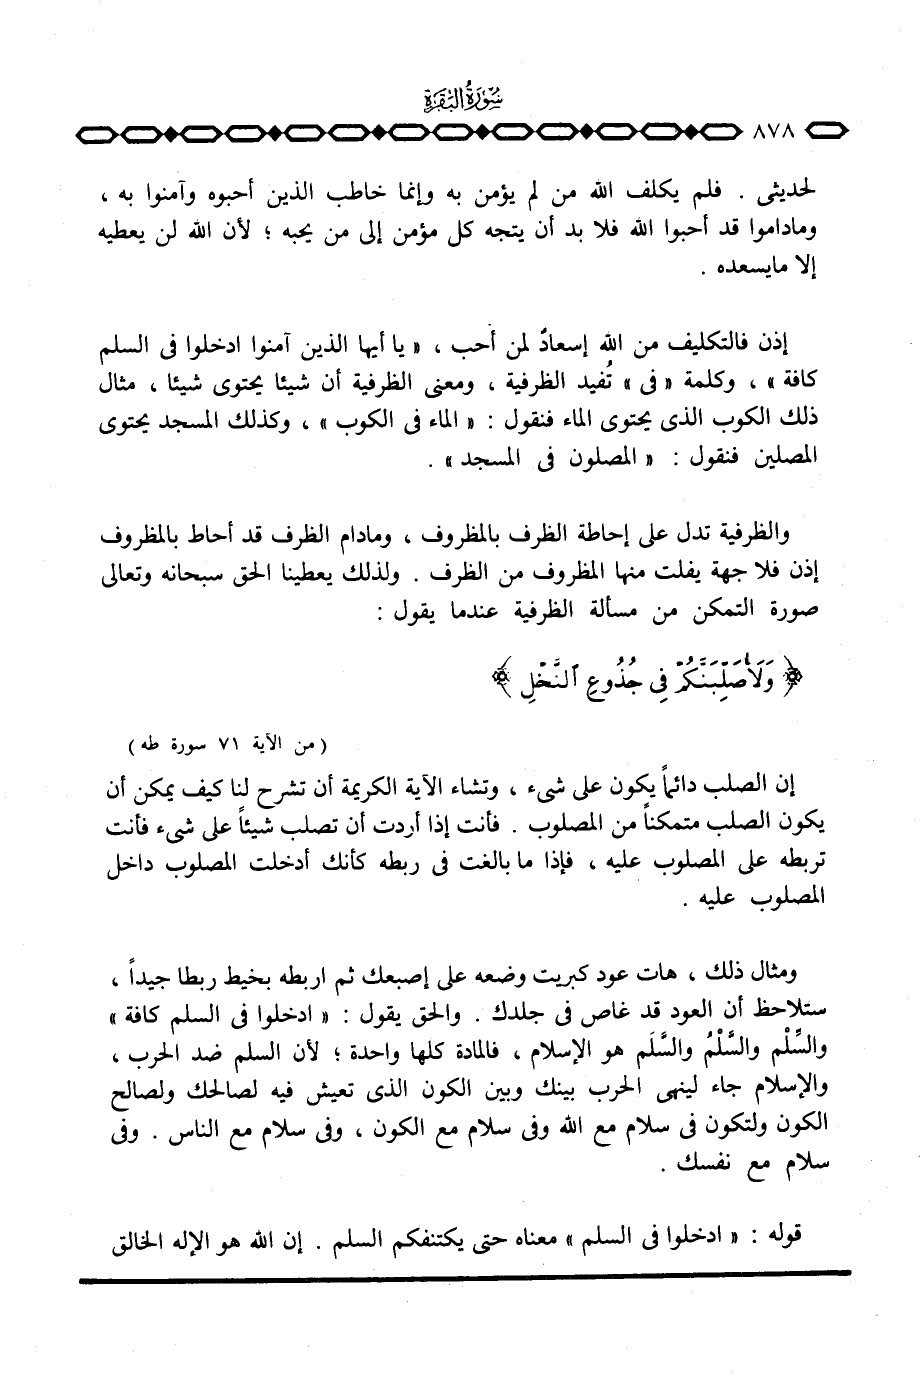 سورة البقرة
٨٧٨
لحديثى . فلم يكلف الله من لم يؤمن به وإنما خاطب الذين أحبوه وآمنوا به ،
وماداموا قد أحبوا الله فلا بد أن يتجه كل مؤمن إلى من يحبه ؛ لأن الله لن يعطيه
إلا مايسعده .
إذن فالتكليف من الله إسعادٌ لمن أحب ، « يا أيها الذين آمنوا ادخلوا فى السلم
كافة » ، وكلمة « فى » تُفيد الظرفية ، ومعنى الظرفية أن شيئا يحتوى شيئا ، مثال
ذلك الكوب الذى يحتوى الماء فنقول : « الماء فى الكوب » ، وكذلك المسجد يحتوى
المصلين فنقول : « المصلون فى المسجد » .
والظرفية تدل على إحاطة الظرف بالمظروف ، ومادام الظرف قد أحاط بالمظروف
إذن فلا جهة يفلت منها المظروف من الظرف . ولذلك يعطينا الحق سبحانه وتعالى
صورة التمكن من مسألة الظرفية عندما يقول :
﴿ وَلَأُصَلِّبَنَّكُمْ فِى جُذُوعِ ٱلنَّخْلِ ﴾
( من الآية ٧١ سورة طه )
إن الصلب دائماً يكون على شىء ، وتشاء الآية الكريمة أن تشرح لنا كيف يمكن أن
يكون الصلب متمكناً من المصلوب . فأنت إذا أردت أن تصلب شيئاً على شىء فأنت
تربطه على المصلوب عليه ، فإذا ما بالغت فى ربطه كأنك أدخلت المصلوب داخل
المصلوب عليه .
ومثال ذلك ، هات عود كبريت وضعه على إصبعك ثم اربطه بخيط ربطا جيداً ،
ستلاحظ أن العود قد غاص فى جلدك . والحق يقول : « ادخلوا فى السلم كافة »
والسِّلْم والسَّلْمُ والسَّلَم هو الإسلام ، فالمادة كلها واحدة ؛ لأن السلم ضد الحرب ،
والإسلام جاء لينهى الحرب بينك وبين الكون الذى تعيش فيه لصالحك ولصالح
الكون ولتكون فى سلام مع الله وفى سلام مع الكون ، وفى سلام مع الناس . وفى
سلام مع نفسك .
قوله : « ادخلوا فى السلم » معناه حتى يكتنفكم السلم . إن الله هو الإله الخالق